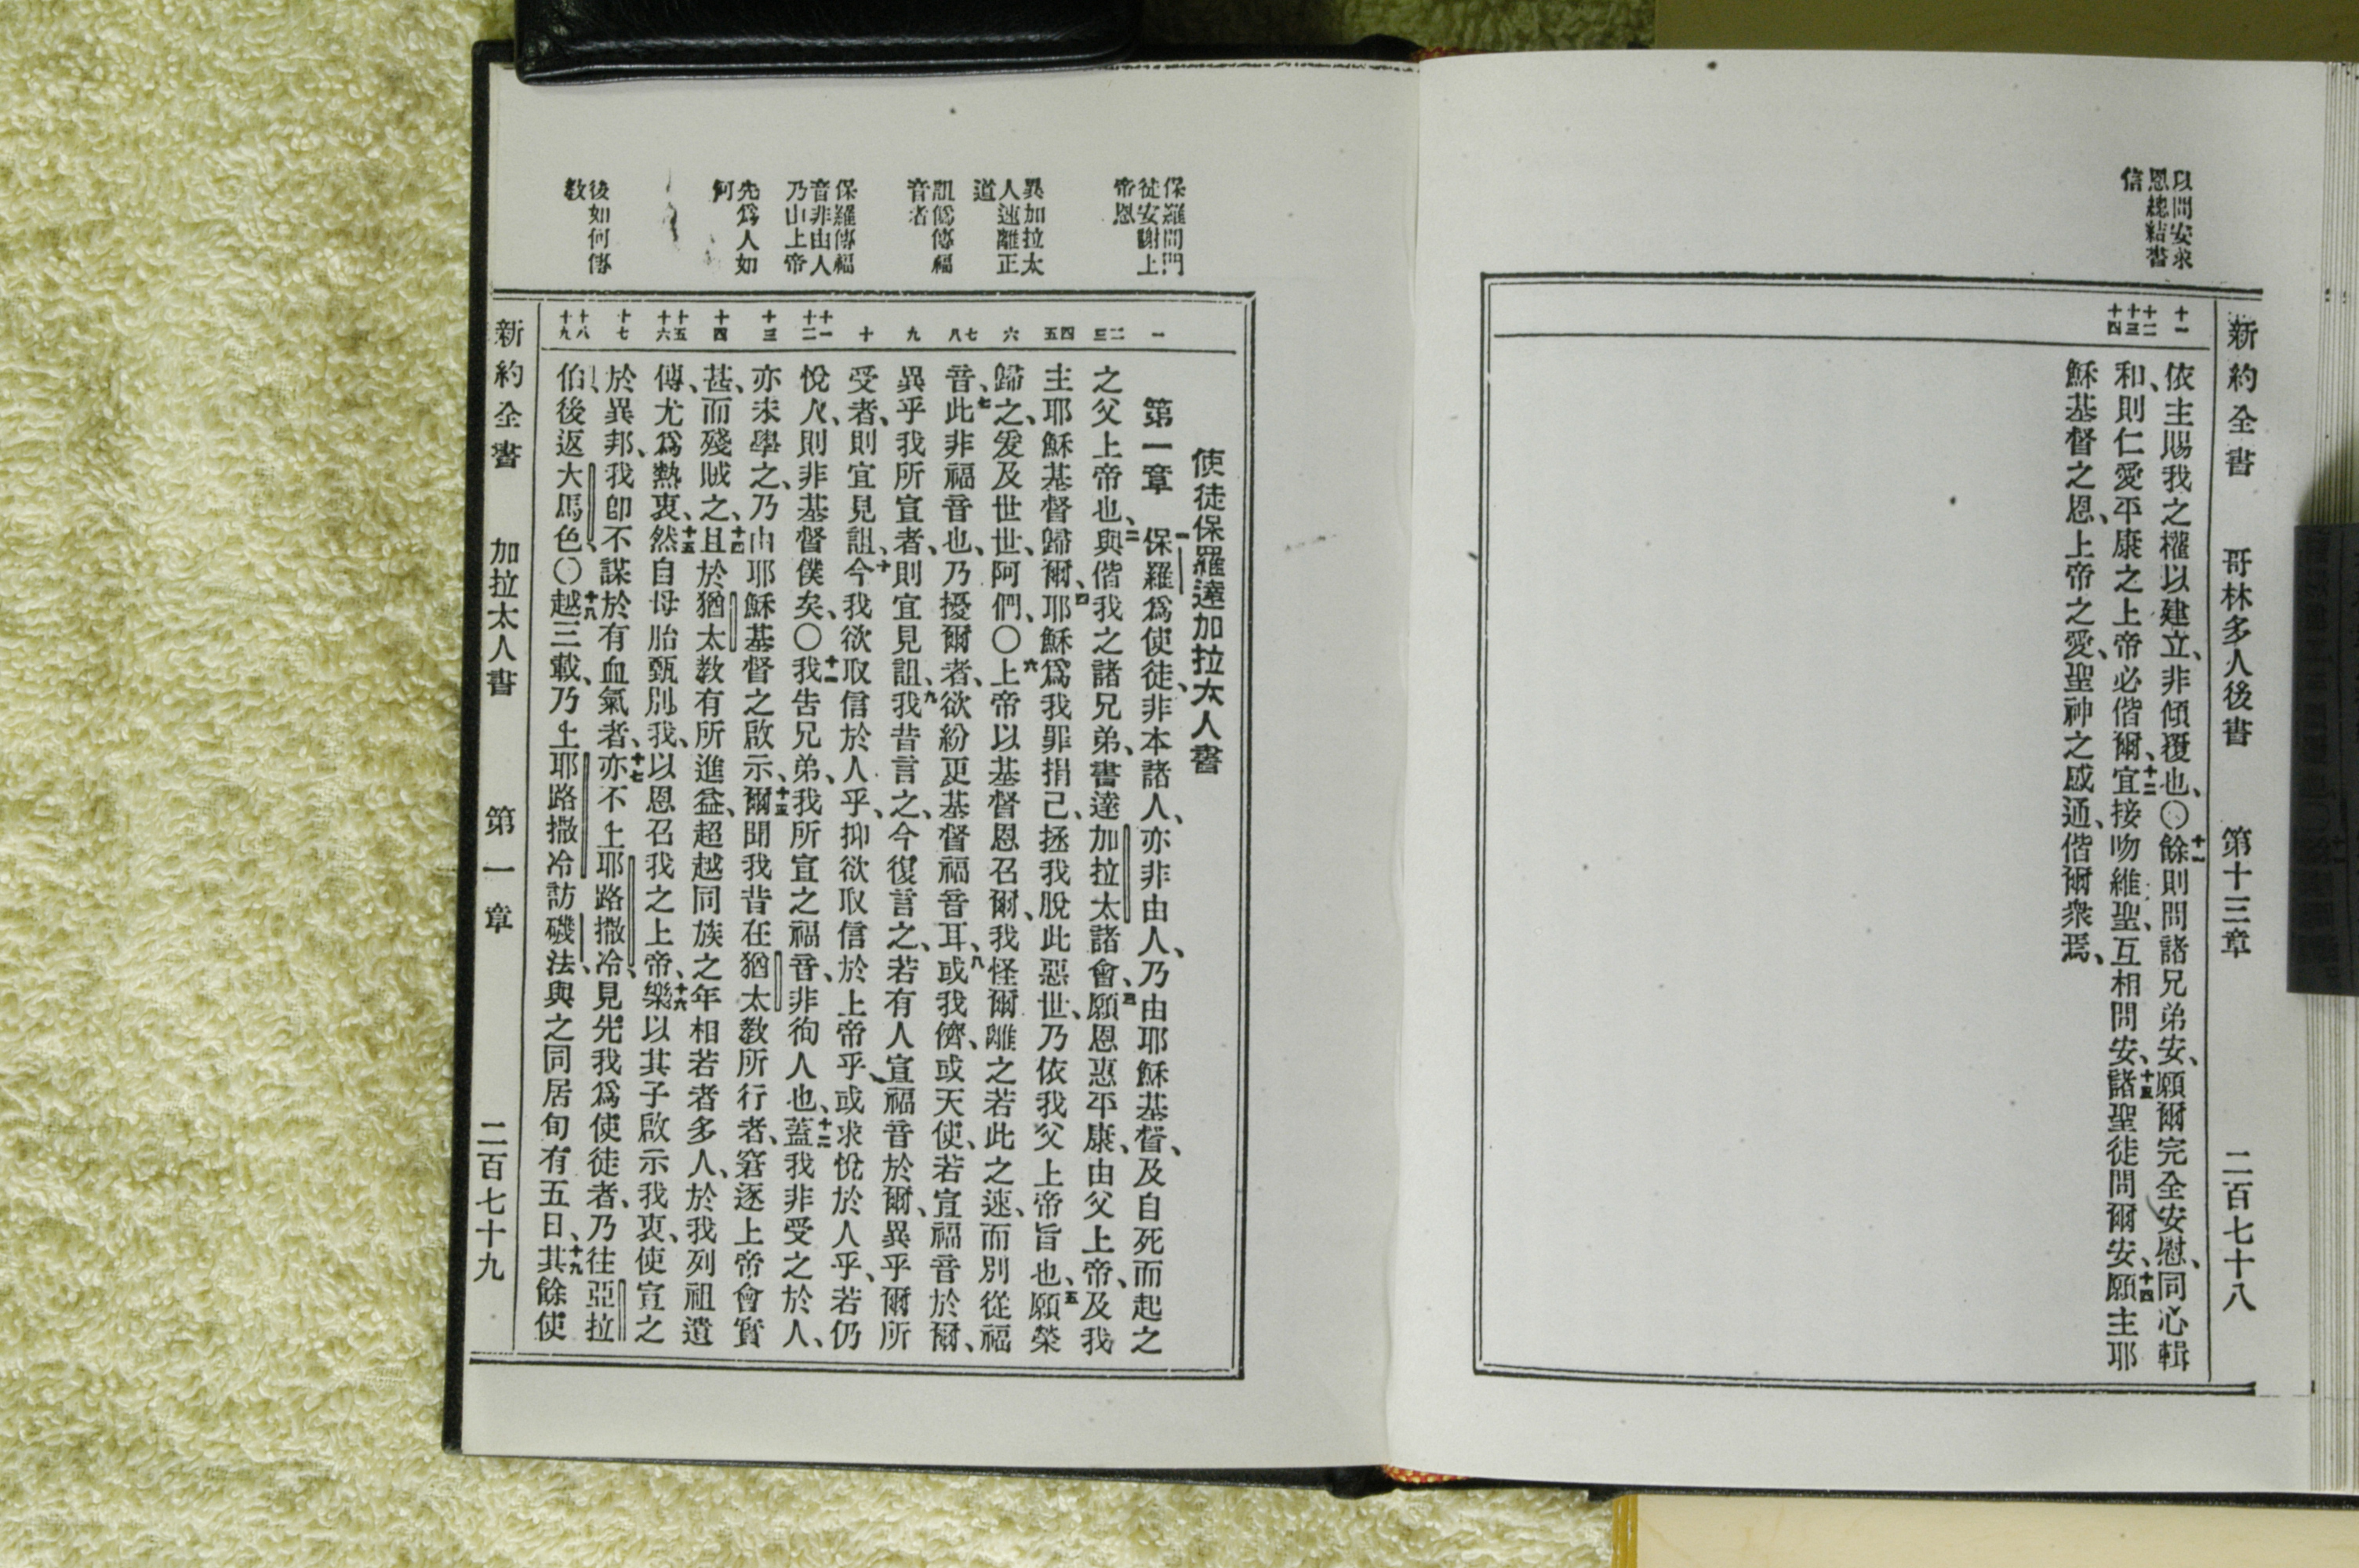 新約全書 哥林多人後書 第十三章 二百七十八
以問安求
恩總結書
信
十一
十二
十三
十四
依主賜我之權以建立、非傾覆也、〇十一餘則問諸兄弟安、願爾完全安慰、同心輯
和、則仁愛平康之上帝必偕爾、十二宜接吻維聖、互相問安、十三諸聖徒問爾安、十四願主耶
穌基督之恩、上帝之愛、聖神之感通、偕爾衆焉、
保羅問門
徒安謝上
帝恩
異加拉太
人速離正
道
詛僞傳福
音者
保羅傳福
音非由人
乃由上帝
先爲人如
何
後如何傳
教
一
二
三
四
五
六
七
八
九
十
十一
十二
十三
十四
十五
十六
十七
十八
十九
使徒保羅達加拉太人書
第一章 一保羅爲使徒、非本諸人、亦非由人、乃由耶穌基督、及自死而起之
之父上帝也、二與偕我之諸兄弟、書達加拉太諸會、三願恩惠平康、由父上帝、及我
主耶穌基督歸爾、四耶穌爲我罪捐己、拯我脫此惡世、乃依我父上帝旨也、五願榮
歸之、爰及世世、阿們、〇六上帝以基督恩召爾、我怪爾離之若此之速、而別從福
音、七此非福音也、乃擾爾者、欲紛更基督福音耳、八或我儕、或天使、若宣福音於爾、
異乎我所宣者、則宜見詛、九我昔言之、今復言之、若有人宣福音於爾、異乎爾所
受者、則宜見詛、十今我欲取信於人乎、抑欲取信於上帝乎、或求悅於人乎、若仍
悅人、則非基督僕矣、〇十一我告兄弟、我所宣之福音、非徇人也、十二蓋我非受之於人、
亦未學之、乃由耶穌基督之啟示、十三爾聞我昔在猶太教所行者、窘逐上帝會實
甚、而殘賊之、十四且於猶太教有所進益、超越同族之年相若者多人、於我列祖遺
傳、尤爲熱衷、十五然自母胎甄別我、以恩召我之上帝、十六樂以其子啟示我衷、使宣之
於異邦、我卽不謀於有血氣者、十七亦不上耶路撒冷、見先我爲使徒者、乃往亞拉
伯、後返大馬色、〇十八越三載、乃上耶路撒冷訪磯法、與之同居旬有五日、十九其餘使
新約全書 加拉太人書 第一章 二百七十九